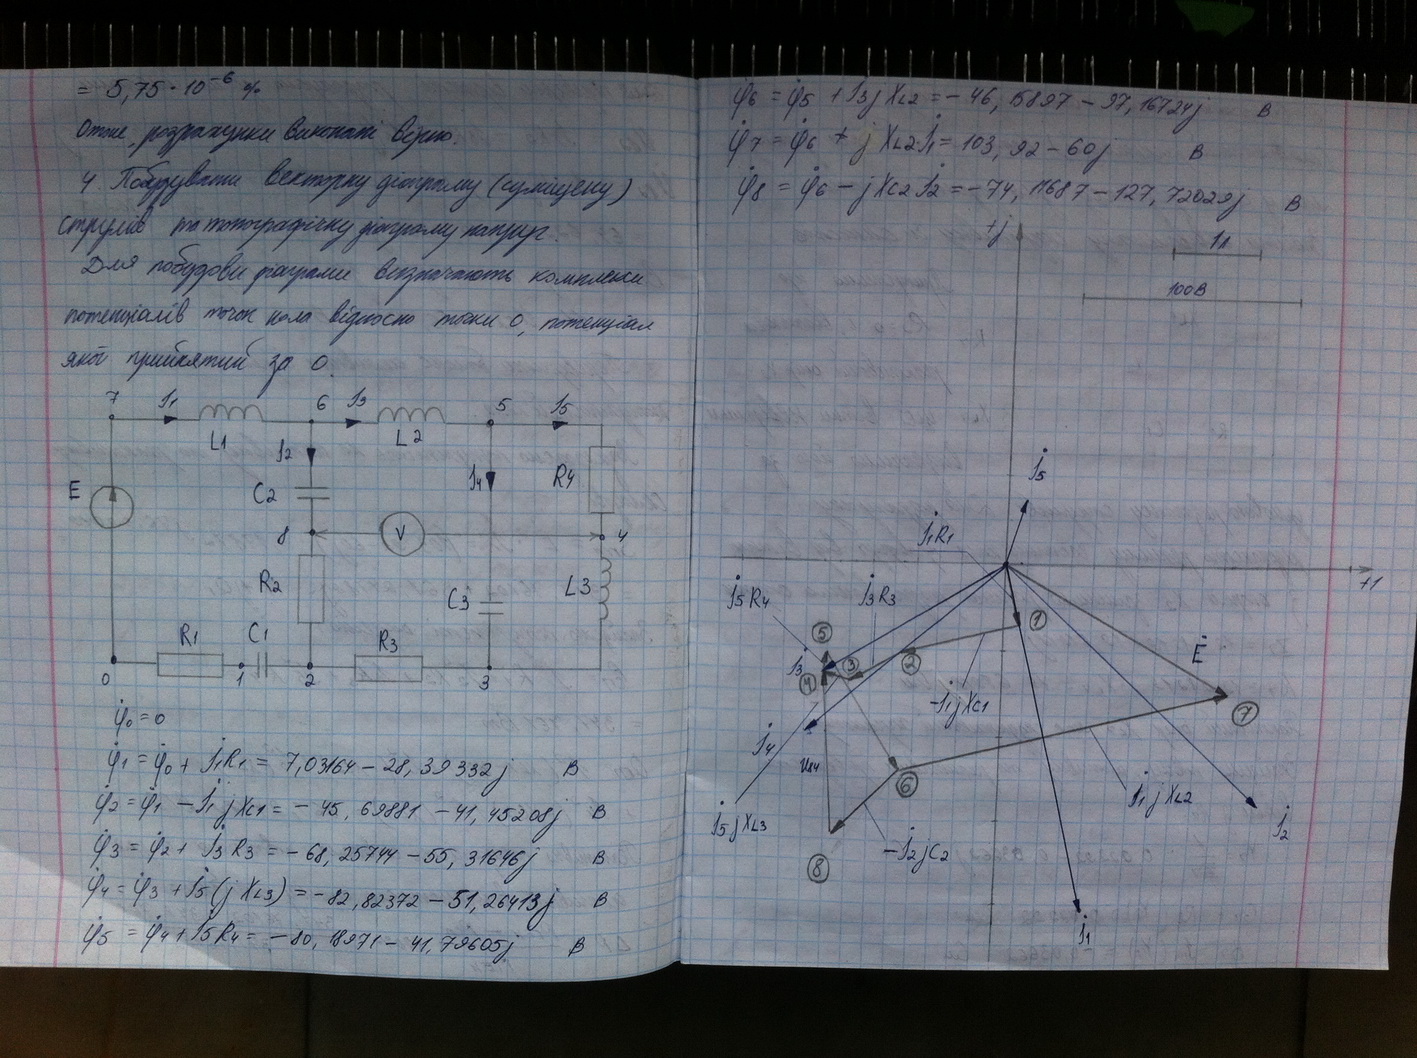 = 5,75 · 10⁻⁶ %
Отже, розрахунки виконані вірно.
4 Побудувати векторну діаграму (суміщену)
струмів та топографічну діаграму напруг.
Для побудови діаграми визначають комплекси
потенціалів точок кола відносно точки 0, потенціал
якої прийнятий за 0.
7 İ1 6 İ3 5 İ5
L1 L2
İ2 İ4 R4
E C2
8 V 4
R2 C3 L3
R1 C1 R3
0 1 2 3
φ̇0 = 0
φ̇1 = φ̇0 + İ1R1 = 7,03164 - 28,39332j В
φ̇2 = φ̇1 - İ1jXC1 = - 45,69881 - 41,45208j В
φ̇3 = φ̇2 + İ3R3 = - 68,25744 - 55,31646j В
φ̇4 = φ̇3 + İ5(jXL3) = - 82,82372 - 51,26413j В
φ̇5 = φ̇4 + İ5R4 = - 80,18971 - 41,79605j В
φ̇6 = φ̇5 + İ3jXL2 = - 46,15897 - 97,16724j В
φ̇7 = φ̇6 + jXL2İ1 = 103,92 - 60j В
φ̇8 = φ̇6 - jXC2İ2 = - 74,11687 - 127,72029j В
+j
1А
100В
İ5
İ1R1
+1
İ5R4 İ3R3
1
5
İ3 3 2
Ė
4
-İ1jXC1
7
İ4
U84
6
İ5jXL3
İ1jXL2
İ2
-İ2jC2
8
İ1